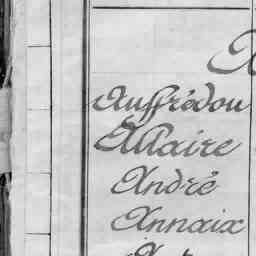 A
Auffrédou
Allaire
André
Annaix